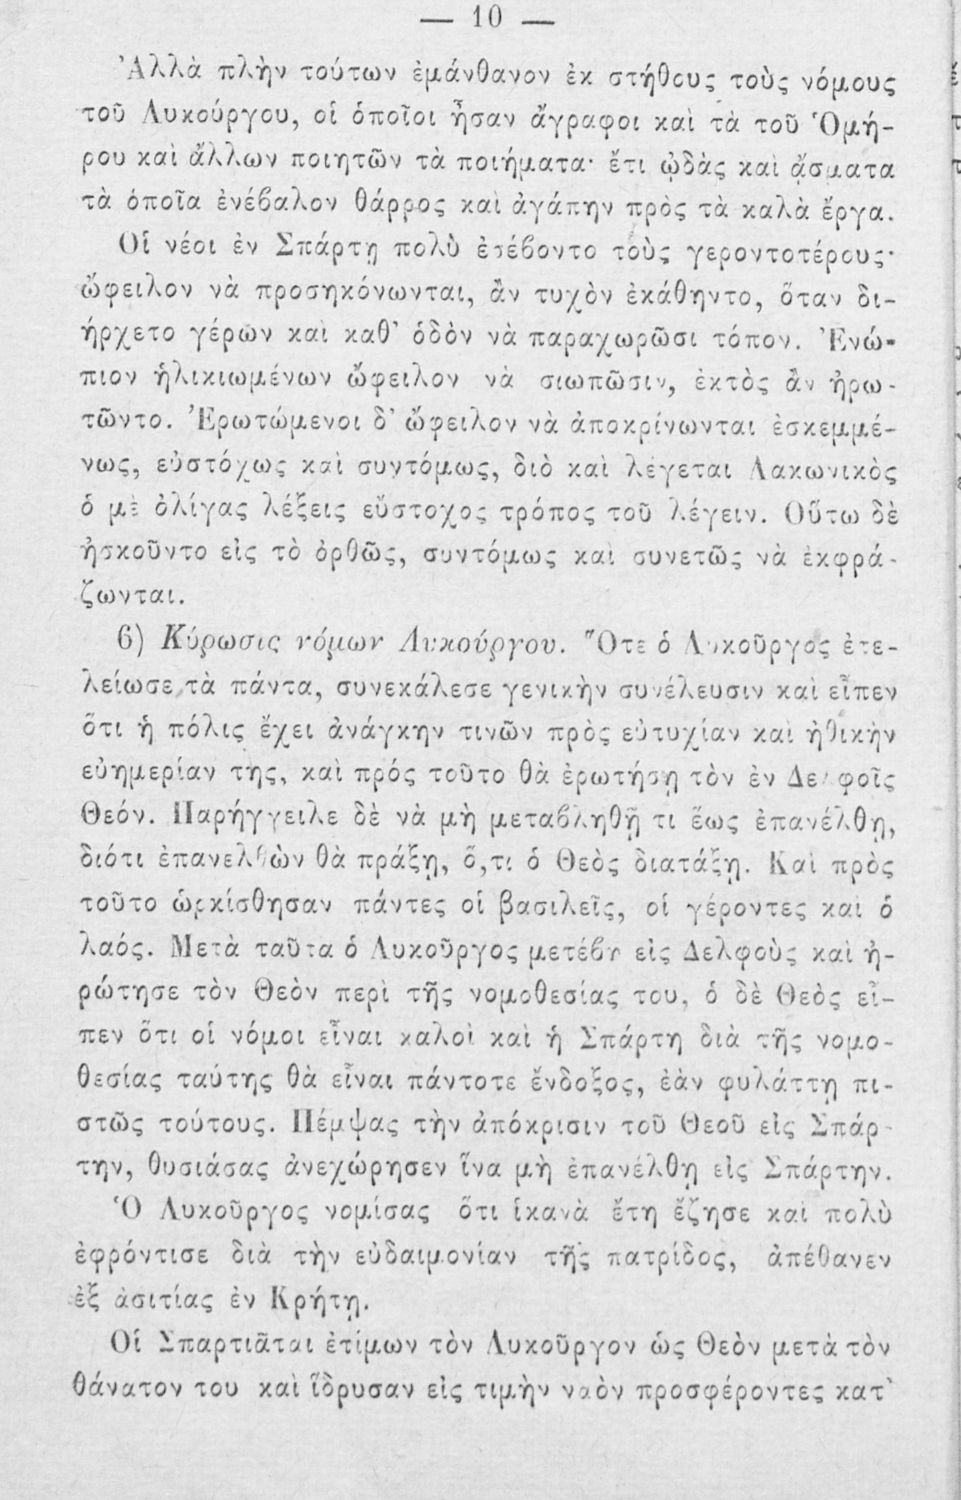 — 10 —
Ἀλλὰ πλὴν τούτων ἐμάνθανον ἐκ στήθους τοὺς νόμους
τοῦ Λυκούργου, οἱ ὁποῖοι ἦσαν ἄγραφοι καὶ τὰ τοῦ Ὁμή-
ρου καὶ ἄλλων ποιητῶν τὰ ποιήματα· ἔτι ᾠδὰς καὶ ᾄσματα
τὰ ὁποῖα ἐνέβαλον θάρρος καὶ ἀγάπην πρὸς τὰ καλὰ ἔργα.
Οἱ νέοι ἐν Σπάρτῃ πολὺ ἐσέβοντο τοὺς γεροντοτέρους·
ὤφειλον νὰ προσηκόνωνται, ἂν τυχὸν ἐκάθηντο, ὅταν δι-
ήρχετο γέρων καὶ καθ' ὁδὸν νὰ παραχωρῶσι τόπον. Ἐνώ-
πιον ἡλικιωμένων ὤφειλον νὰ σιωπῶσιν, ἐκτὸς ἂν ἠρω-
τῶντο. Ἐρωτώμενοι δ' ὤφειλον νὰ ἀποκρίνωνται ἐσκεμμέ-
νως, εὐστόχως καὶ συντόμως, διὸ καὶ λέγεται Λακωνικὸς
ὁ μὲ ὀλίγας λέξεις εὔστοχος τρόπος τοῦ λέγειν. Οὕτω δὲ
ἠσκοῦντο εἰς τὸ ὀρθῶς, συντόμως καὶ συνετῶς νὰ ἐκφρά-
ζωνται.
6) Κύρωσις νόμων Λυκούργου. Ὅτε ὁ Λυκοῦργος ἐτε-
λείωσε τὰ πάντα, συνεκάλεσε γενικὴν συνέλευσιν καὶ εἶπεν
ὅτι ἡ πόλις ἔχει ἀνάγκην τινῶν πρὸς εὐτυχίαν καὶ ἠθικὴν
εὐημερίαν της, καὶ πρός τοῦτο θὰ ἐρωτήσῃ τὸν ἐν Δελφοῖς
Θεόν. Παρήγγειλε δὲ νὰ μὴ μεταβληθῇ τι ἕως ἐπανέλθῃ,
διότι ἐπανελθὼν θὰ πράξῃ, ὅ,τι ὁ Θεὸς διατάξῃ. Καὶ πρὸς
τοῦτο ὡρκίσθησαν πάντες οἱ βασιλεῖς, οἱ γέροντες καὶ ὁ
λαός. Μετὰ ταῦτα ὁ Λυκοῦργος μετέβη εἰς Δελφοὺς καὶ ἠ-
ρώτησε τὸν Θεὸν περὶ τῆς νομοθεσίας του, ὁ δὲ Θεὸς εἶ-
πεν ὅτι οἱ νόμοι εἶναι καλοὶ καὶ ἡ Σπάρτη διὰ τῆς νομο-
θεσίας ταύτης θὰ εἶναι πάντοτε ἔνδοξος, ἐὰν φυλάττῃ πι-
στῶς τούτους. Πέμψας τὴν ἀπόκρισιν τοῦ Θεοῦ εἰς Σπάρ-
την, θυσιάσας ἀνεχώρησεν ἵνα μὴ ἐπανέλθῃ εἰς Σπάρτην.
Ὁ Λυκοῦργος νομίσας ὅτι ἱκανὰ ἔτη ἔζησε καὶ πολὺ
ἐφρόντισε διὰ τὴν εὐδαιμονίαν τῆς πατρίδος, ἀπέθανεν
ἐξ ἀσιτίας ἐν Κρήτῃ.
Οἱ Σπαρτιᾶται ἐτίμων τὸν Λυκοῦργον ὡς Θεὸν μετὰ τὸν
θάνατον του καὶ ἵδρυσαν εἰς τιμὴν ναὸν προσφέροντες κατ'